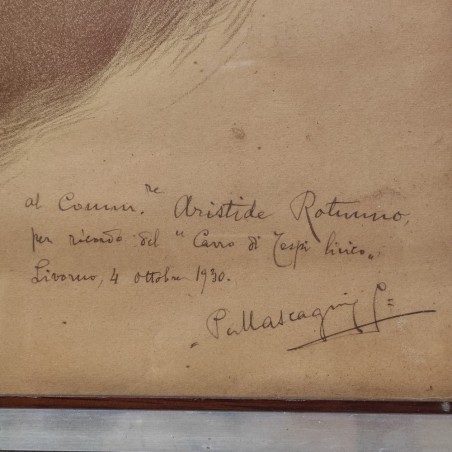 al Comm.re Aristide Rotunno,
per ricordo del "Carro di Tespi lirico„
Livorno, 4 ottobre 1930.
PMascagni